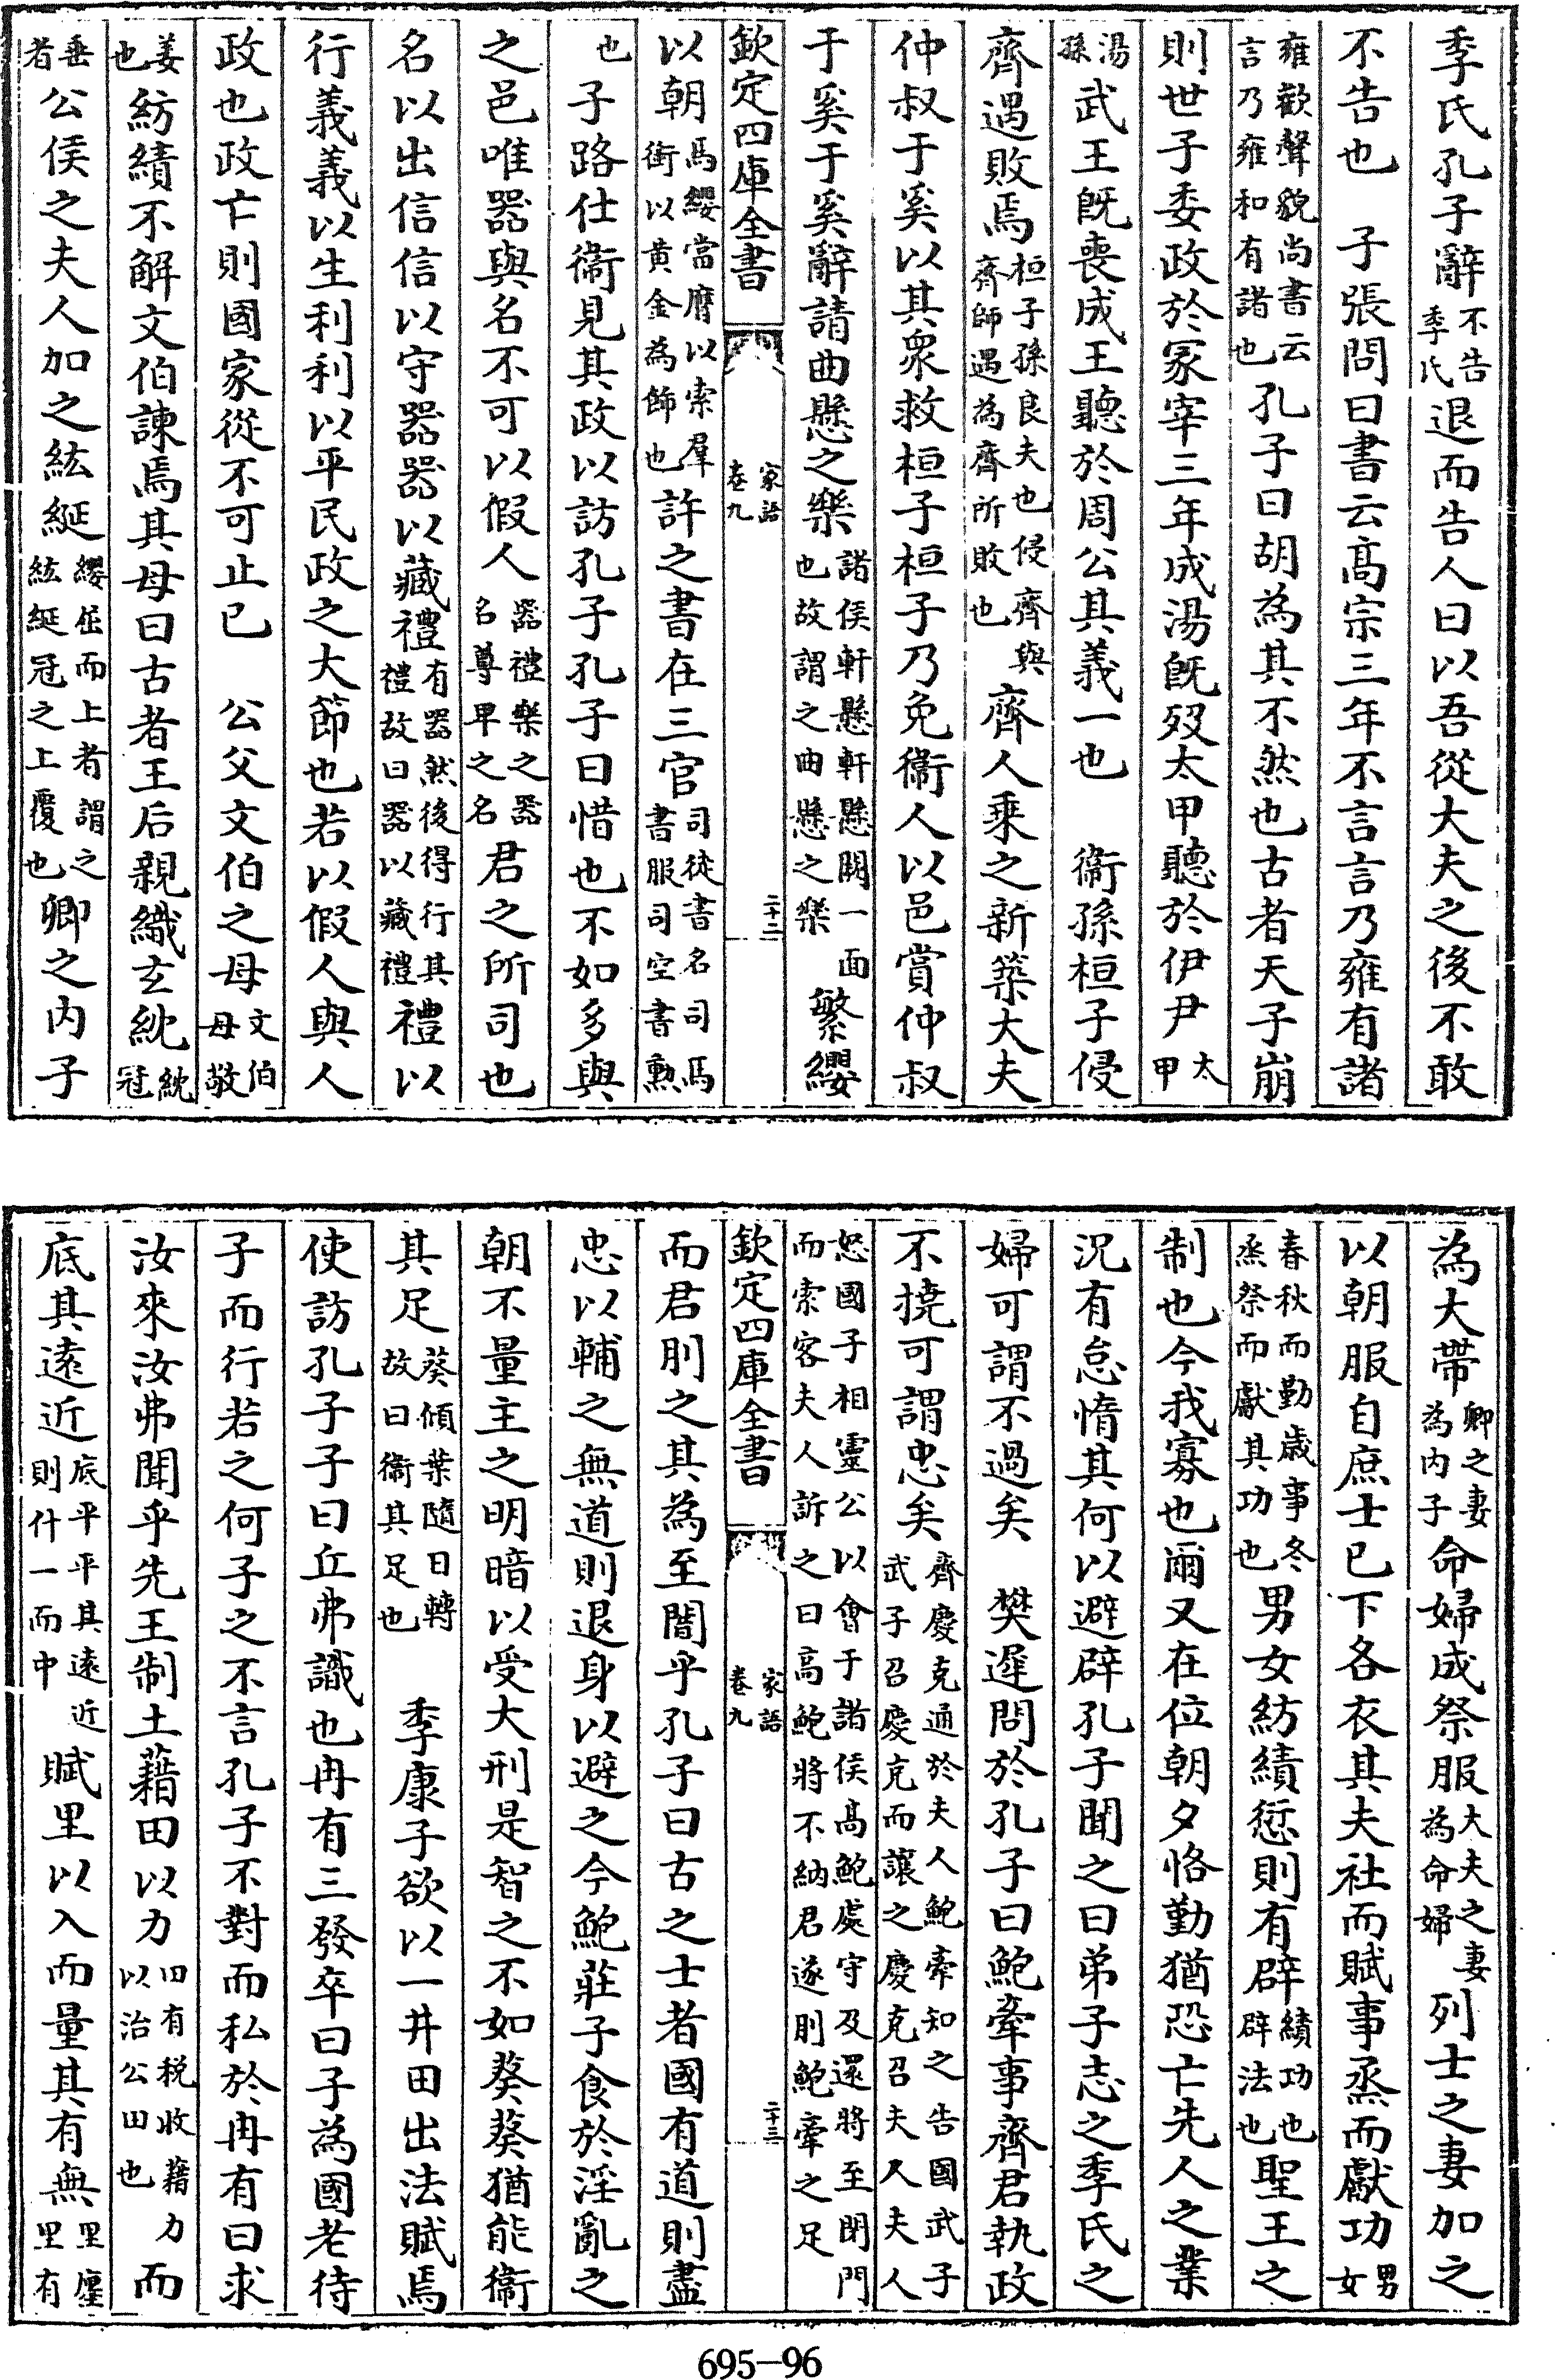 季氏孔子辭不告季氏退而告人曰以吾從大夫之後不敢
不告也　子張問曰書云髙宗三年不言言乃雍有諸
雍歡聲貌尚書云言乃雍和有諸也孔子曰胡為其不然也古者天子崩
則世子委政於冢宰三年成湯既歿太甲聽於伊尹太甲
湯孫武王既喪成王聽於周公其義一也　衞孫桓子侵
齊遇敗焉桓子孫良夫也侵齊與齊師遇為齊所敗也齊人乗之新築大夫
仲叔于奚以其衆救桓子桓子乃免衞人以邑賞仲叔
于奚于奚辭請曲懸之樂諸侯軒懸軒懸闕一面也故謂之曲懸之樂繁纓
欽定四庫全書　家語卷九　二十二
以朝馬纓當膺以索羣銜以黄金為飾也許之書在三官司徒書名司馬書服司空書勲
也子路仕衞見其政以訪孔子孔子曰惜也不如多與
之邑唯器與名不可以假人器禮樂之器名尊卑之名君之所司也
名以出信信以守器器以藏禮有器然後得行其禮故曰器以藏禮禮以
行義義以生利利以平民政之大節也若以假人與人
政也政亡則國家從不可止已　公父文伯之母文伯母敬
姜也紡績不解文伯諫焉其母曰古者王后親織玄紞紞冠
垂者公侯之夫人加之紘綖纓屈而上者謂之紘綖冠之上覆也卿之内子
為大帶卿之妻為内子命婦成祭服大夫之妻為命婦列士之妻加之
以朝服自庶士已下各衣其夫社而賦事烝而獻功男女
春秋而勤歳事冬烝祭而獻其功也男女紡績愆則有辟績功也辟法也聖王之
制也今我寡也爾又在位朝夕恪勤猶恐亡先人之業
況有怠惰其何以避辟孔子聞之曰弟子志之季氏之
婦可謂不過矣　樊遲問於孔子曰鮑牽事齊君執政
不撓可謂忠矣齊慶克通於夫人鮑牽知之告國武子武子召慶克而讓之慶克召夫人夫人
怒國子相靈公以會于諸侯髙鮑處守及還將至閉門而索客夫人訴之曰高鮑將不納君遂刖鮑牽之足
欽定四庫全書　家語卷九　二十三
而君刖之其為至闇乎孔子曰古之士者國有道則盡
忠以輔之無道則退身以避之今鮑莊子食於淫亂之
朝不量主之明暗以受大刑是智之不如葵葵猶能衞
其足葵傾葉隨日轉故曰衞其足也　季康子欲以一井田出法賦焉
使訪孔子子曰丘弗識也冉有三發卒曰子為國老待
子而行若之何子之不言孔子不對而私於冉有曰求
汝來汝弗聞乎先王制土藉田以力田有税收藉力以治公田也而
底其逺近底平平其逺近則什一而中賦里以入而量其有無里廛里有
695—96